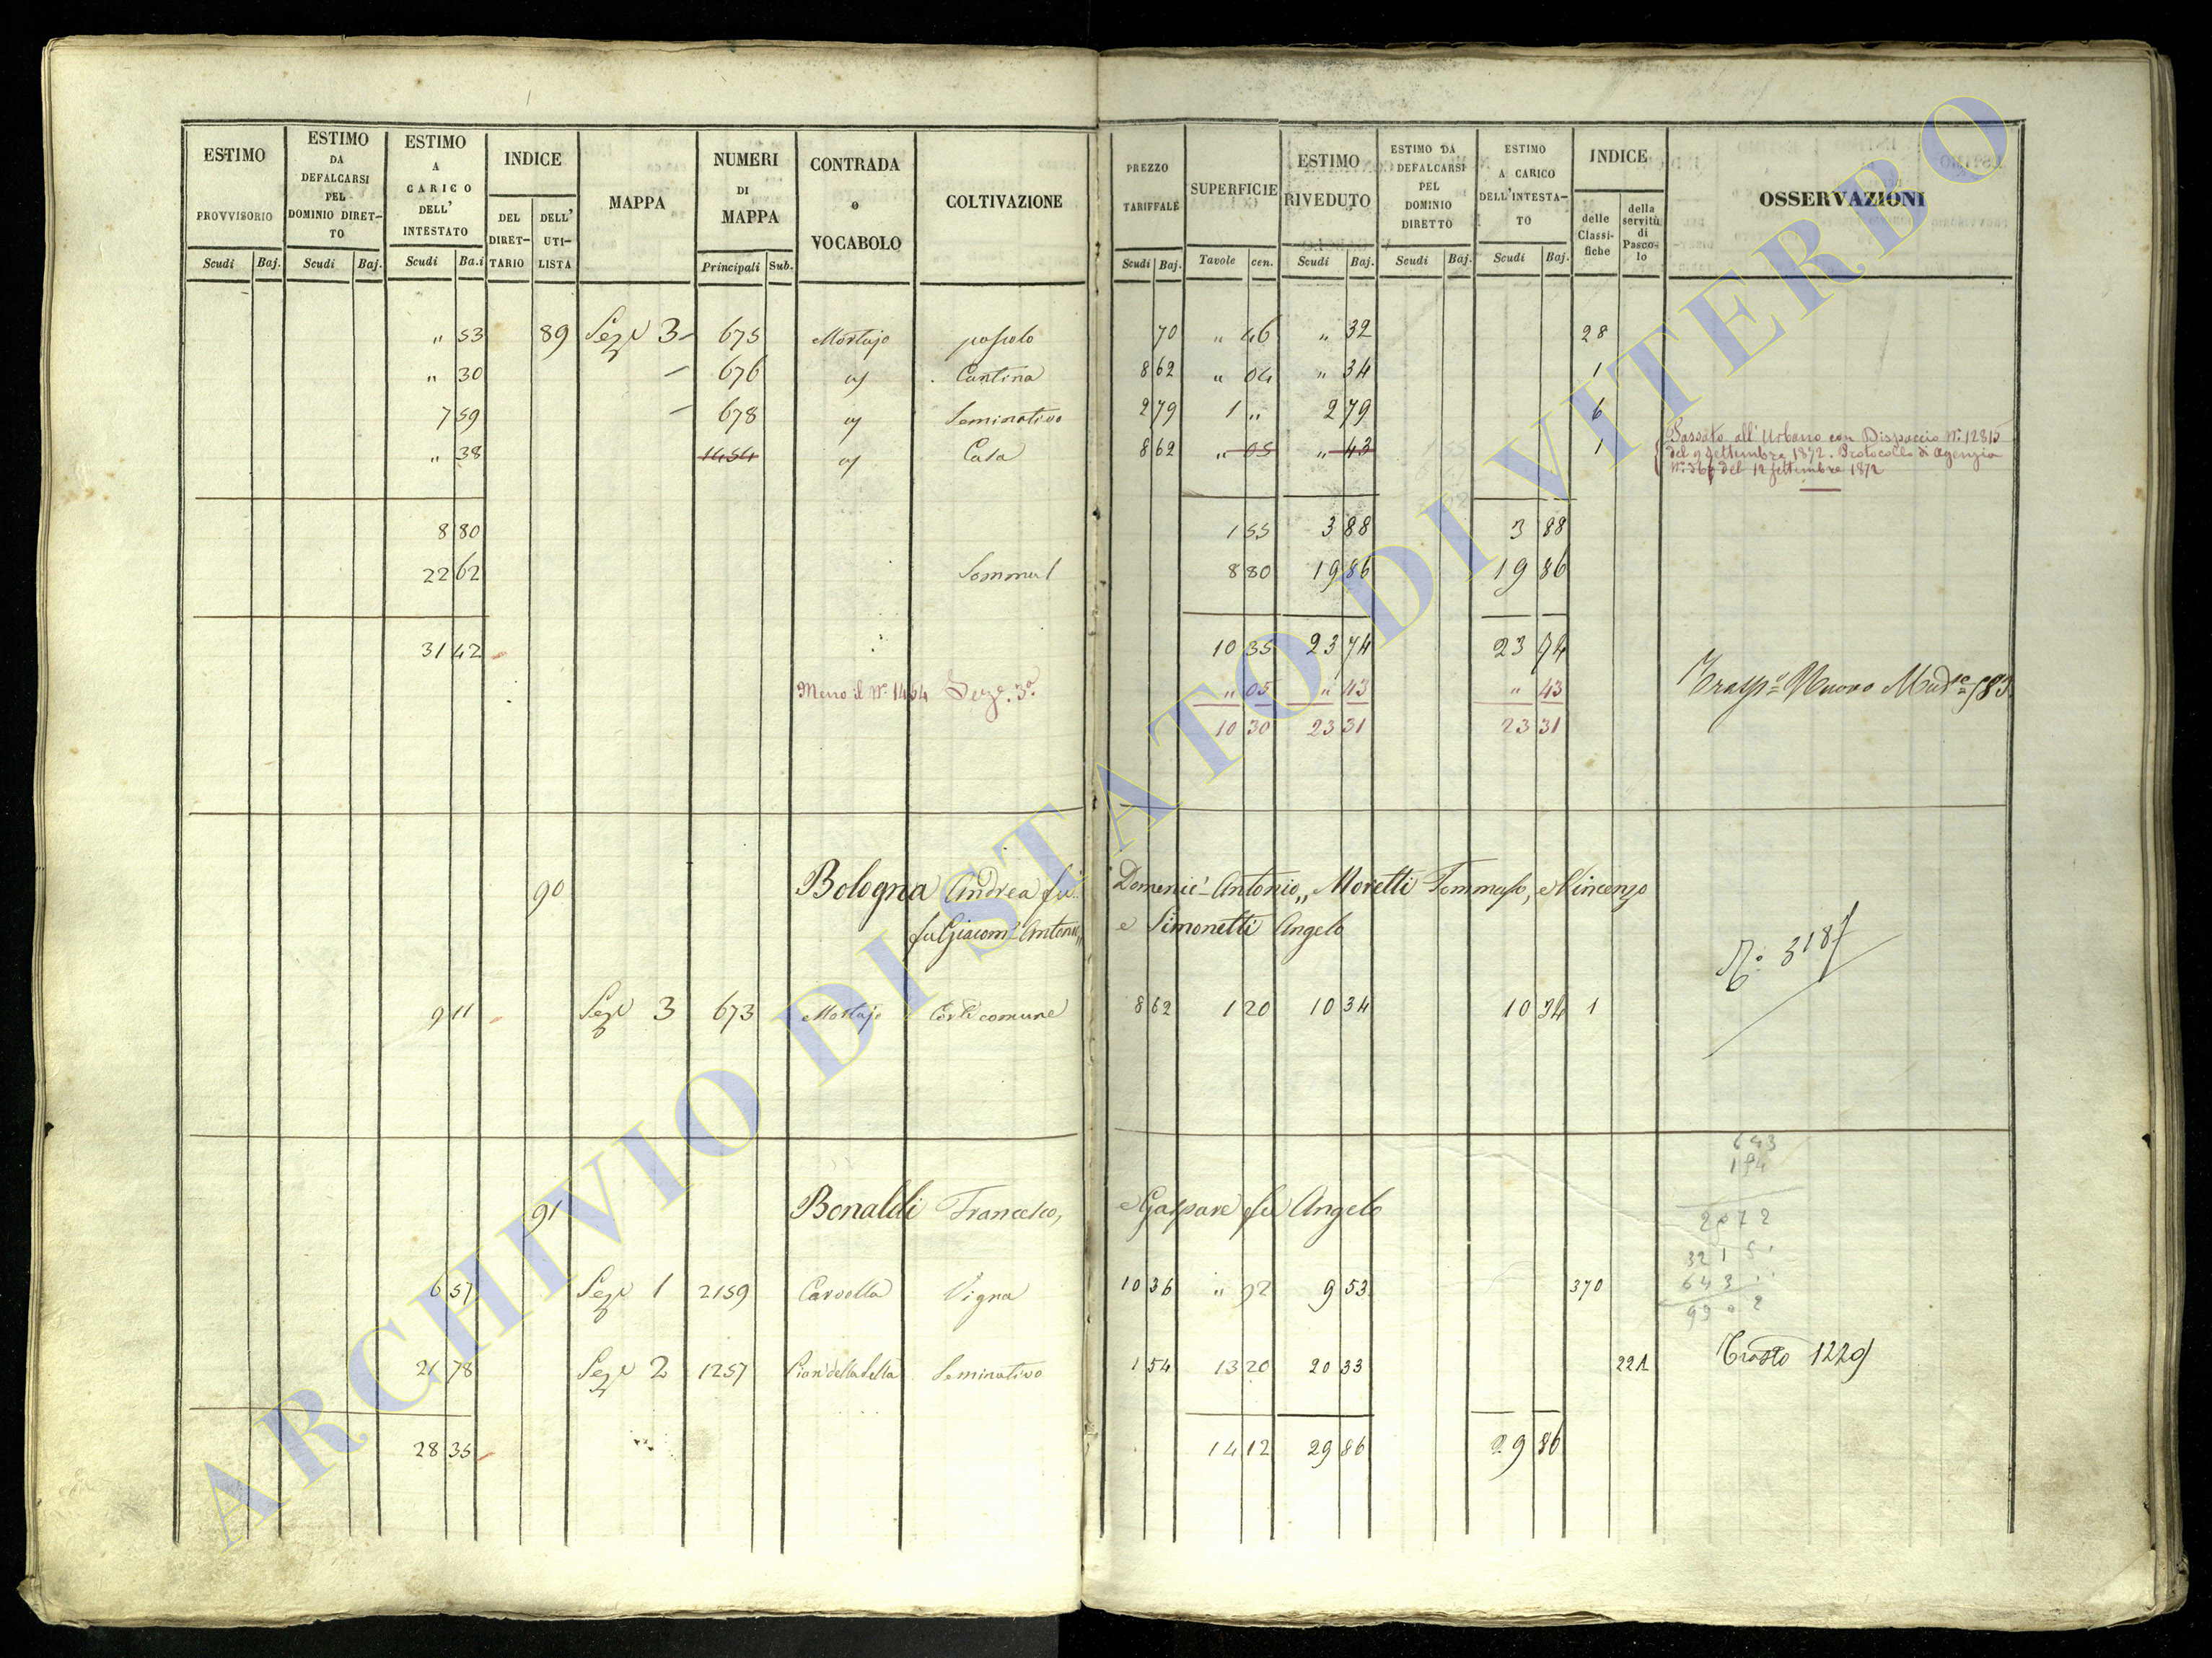 ESTIMO PROVVISORIO
ESTIMO DA DEFALCARSI PEL DOMINIO DIRET-TO
ESTIMO A CARICO DELL' INTESTATO
INDICE
DEL DIRET-TARIO
DELL' UTI-LISTA
MAPPA
NUMERI DI MAPPA
CONTRADA o VOCABOLO
COLTIVAZIONE
Scudi Baj. Scudi Baj. Scudi Ba.i Principali Sub.
PREZZO TARIFFALE
SUPERFICIE
ESTIMO RIVEDUTO
ESTIMO DA DEFALCARSI PEL DOMINIO DIRETTO
ESTIMO A CARICO DELL'INTESTA-TO
INDICE
delle Classi-fiche
della servitù di Pasco-lo
OSSERVAZIONI
Scudi Baj. Tavole cen. Scudi Baj. Scudi Baj. Scudi Baj.
" 53 89 Seze 3 675 Mortajo pascolo 70 " 46 " 32 28
" 30 676 Cantina 8 62 " 04 " 34 1
7 59 678 Seminativo 2 79 1 " 2 79 6
" 38 1454 Casa 8 62 " 05 " 43 1
Passato all'Urbano con Dispaccio N. 12815
del 9 Settembre 1872. Protocollo di Agenzia
del 12 settembre 1872
8 80 1 55 3 88 3 88
22 62 8 80 19 86 19 86
31 42 10 35 23 74 23 74
Meno il N. 1454 Seze. 3a. " 05 " 43 " 43
10 30 23 31 23 31
Nuovo
90 Bologna Andrea fu Domenic'Antonio,, Moretti Tommaso, e Vincenzo
fu Giacom'Antonio,, e Simonetti Angelo
N.° 3187
9 11 Seze 3 673 Mortajo Corte comune 8 62 1 20 10 34 10 34 1
643
91 Bonaldi Francesco, e Gaspare fu Angelo
6 57 Seze 1 2159 Vigna 10 36 " 92 9 53 370
21 78 Seze 2 1257 Seminativo 1 54 13 20 20 33 221
1229
28 35 14 12 29 86 29 86
ARCHIVIO DI STATO DI VITERBO